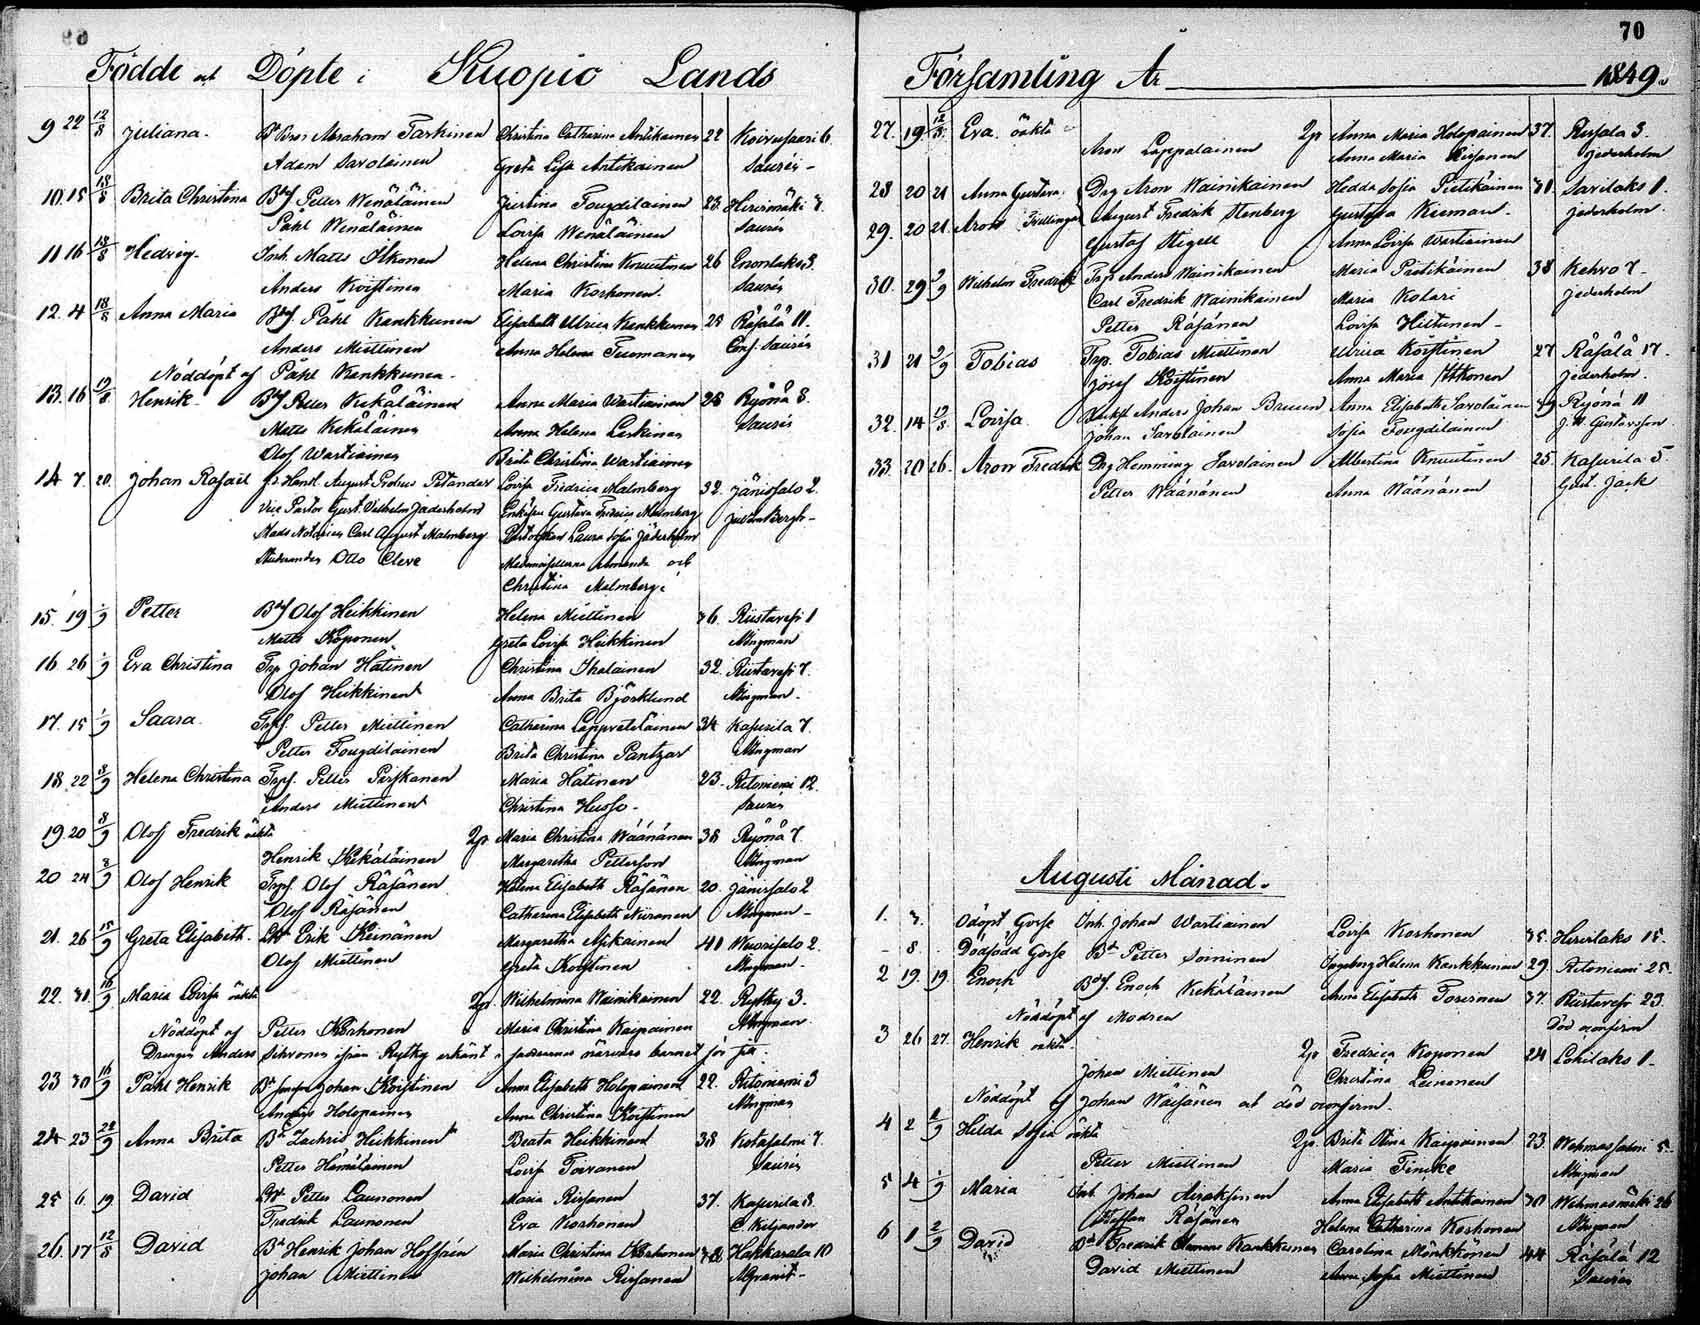 70
Födde och Döpte i Kuopio Lands
Församling År 1849.
9 22 12/8 Juliana. Abraham Tarkinen Christina Catharina Antikainen 22 Koivusaari 6
Adam Savolainen Greta Lisa Antikainen Saurén
10 15 18/8 Brita Christina Petter Wenäläinen Justina Fougdilainen 23 Hirvimäki 7
Påhl Wenäläinen Lovisa Wenäläinen Saurén
11 16 18/8 Hedvig. Inh. Matts Ikonen Helena Christina Knuutinen 26 Enonlaks 3.
Anders Koistinen Maria Korhonen. Saurén
12. 4 18/8 Anna Maria Påhl Kankkunen Elisabeth Ulrica Kankkunen 25 Räsälä 11.
Anders Miettinen Anna Helena Tuomanen Saurén
Nöddöpt af Påhl Kankkunen.
13. 16 19/8 Henrik. Petter Kekäläinen Anna Maria Wartiainen 28 Ryönä 8.
Matts Kekäläinen Anna Helena Leskinen Saurén
Olof Wartiainen Brita Christina Wartiainen
14 7. 20. Johan Rafael August Petander Lovisa Fredrica Malmberg 32. Jänissalo 2.
Vice Pastor Gust. Vilhelm Jäderholm Enkefru Gustava Fredrica Malmberg
Carl August Malmberg Laura Sofia Jäderholm
Studeranden Otto Cleve Mademoisellerna Amanda och
Christina Malmberg.
15. 19 1/9 Petter Olof Heikkinen Helena Miettinen 36. Riistavesi 1
Matts Koponen Greta Lovisa Heikkinen Mingman
16 26 1/9 Eva Christina Trp Johan Hätinen Christina Ikalainen 32. Riistavesi 7.
Olof Heikkinen Anna Brita Björklund Mingman.
17. 15 1/9 Saara. Petter Miettinen Catharina Lappveteläinen 34 Kasurila 7.
Petter Fougdilainen Brita Christina Pantzar Mingman
18. 22 8/9 Helena Christina Petter Pirskanen Maria Hätinen 23. Ritoniemi 12.
Anders Miettinen Christina Husso. Saurén
19. 20 8/9 Olof Fredrik oäkta Maria Christina Wäänänen 38 Ryönä 7.
Henrik Kekäläinen Margaretha Petterson Mingman
20 24 8/9 Olof Henrik Olof Räsänen Helena Elisabeth Räsänen 20. Jänissalo 2
Olof Räsänen Catharina Elisabeth Niiranen Mingman
21. 26 15/9 Greta Elisabeth. Erik Keinänen Margaretha 41 Wuorisalo 2.
Olof Miettinen Greta Koistinen Mingman.
22. 31. 16/9 Maria Lovisa oäkta Wilhelmina Wainikainen 22. Rytky 3.
Nöddöpt af Petter Korhonen Maria Christina Kaipainen Mingman.
Drengen Anders Sihvonen ifrån Rytky erkänt i faddrarnas närvaro barnet för sitt.
23 30 16/9 Påhl Henrik Johan Koistinen Anna Elisabeth Holopainen 22. Ritoniemi 3
Anders Holopainen Anna Christina Koistinen Mingman
24 23 22/9 Anna Brita Zachris Heikkinen Beata Heikkinen 38 Kotasalmi 7.
Petter Hämäläinen Lovisa Toivanen Saurén
25 6 19 David Petter Launonen Maria Rissanen 37. Kasurila 8.
Fredrik Launonen Eva Korhonen C Kiljander
26. 17 12/8 David Henrik Johan Hoffrén Maria Christina Korhonen Hakkarala 10
Johan Miettinen Wilhelmina Rissanen AGranit
27. 19 12/8 Eva. oäkta Anna Maria Holopainen 37. 3.
Aron Lappalainen Anna Maria Rissanen Jederholm
28 20 21 Anna Gustava Drg Aron Wainikainen Hedda Sofia Pietikäinen 31. Savilaks 1.
29. 20 21. Aron Tvillingar August Fredrik Stenberg Gustava Jederholm.
Gustaf Stigell Anna Lovisa Wartiainen
30. 29 2/9 Wilhelm Fredrik Trp Anders Wainikainen Maria Pietikäinen 38 Kehvo 7.
Carl Fredrik Wainikainen Maria Kolari Jederholm
Petter Räsänen Lovisa Hiltunen
31 21 2/9 Tobias Trp. Tobias Miettinen Ulrica Koistinen 27 Räsälä 17.
Josef Koistinen Anna Maria Ikonen Jederholm.
32. 14 19/8 Lovisa Anders Johan Bruun Anna Elisabeth Savolainen 39 Ryönä 11
Johan Savolainen Sofia Fougdilainen Gustavsson.
33. 20 26. Aron Fredrik Drg Hemming Savolainen Albertina Knuutinen 25. Kasurila 5
Petter Wäänänen Anna Wäänänen Jack
Augusti Månad.
1. 3. Odöpt Gosse Inh. Johan Wartiainen Lovisa Korhonen 35. Hirvilaks 15.
- 8. Dödfödd Gosse Petter Soininen Ingeborg Helena Kankkunen 29. Ritoniemi 25.
2 19. 19. Enoch Enoch Kekäläinen Anna Elisabeth Toivonen 37. Riistavesi 23.
Nöddöpt af Modren Död oconfirm
3 26 27. Henrik oäkta. Fredrica Koponen 24 Lohilaks 1.
Johan Miettinen Christina Leinonen
Nöddöpt af Johan Wäisänen och död oconfirm.
4 2 2/9 Hilda Sofia oäkta Brita Stina Kaipainen 23. Wehmassalmi 5.
Petter Miettinen Maria Mingman
5 4 1/9 Maria Inh. Johan Airaksinen Anna Elisabeth Antikainen 30 Wehmasmäki 26
Staffan Räsänen Helena Catharina Koskonen Mingman
6 1 2/9 David Fredrik Clemens Kankkunen Carolina Mönkkönen 44 Räsälä 12
David Miettinen Anna Sofia Miettinen Saurén